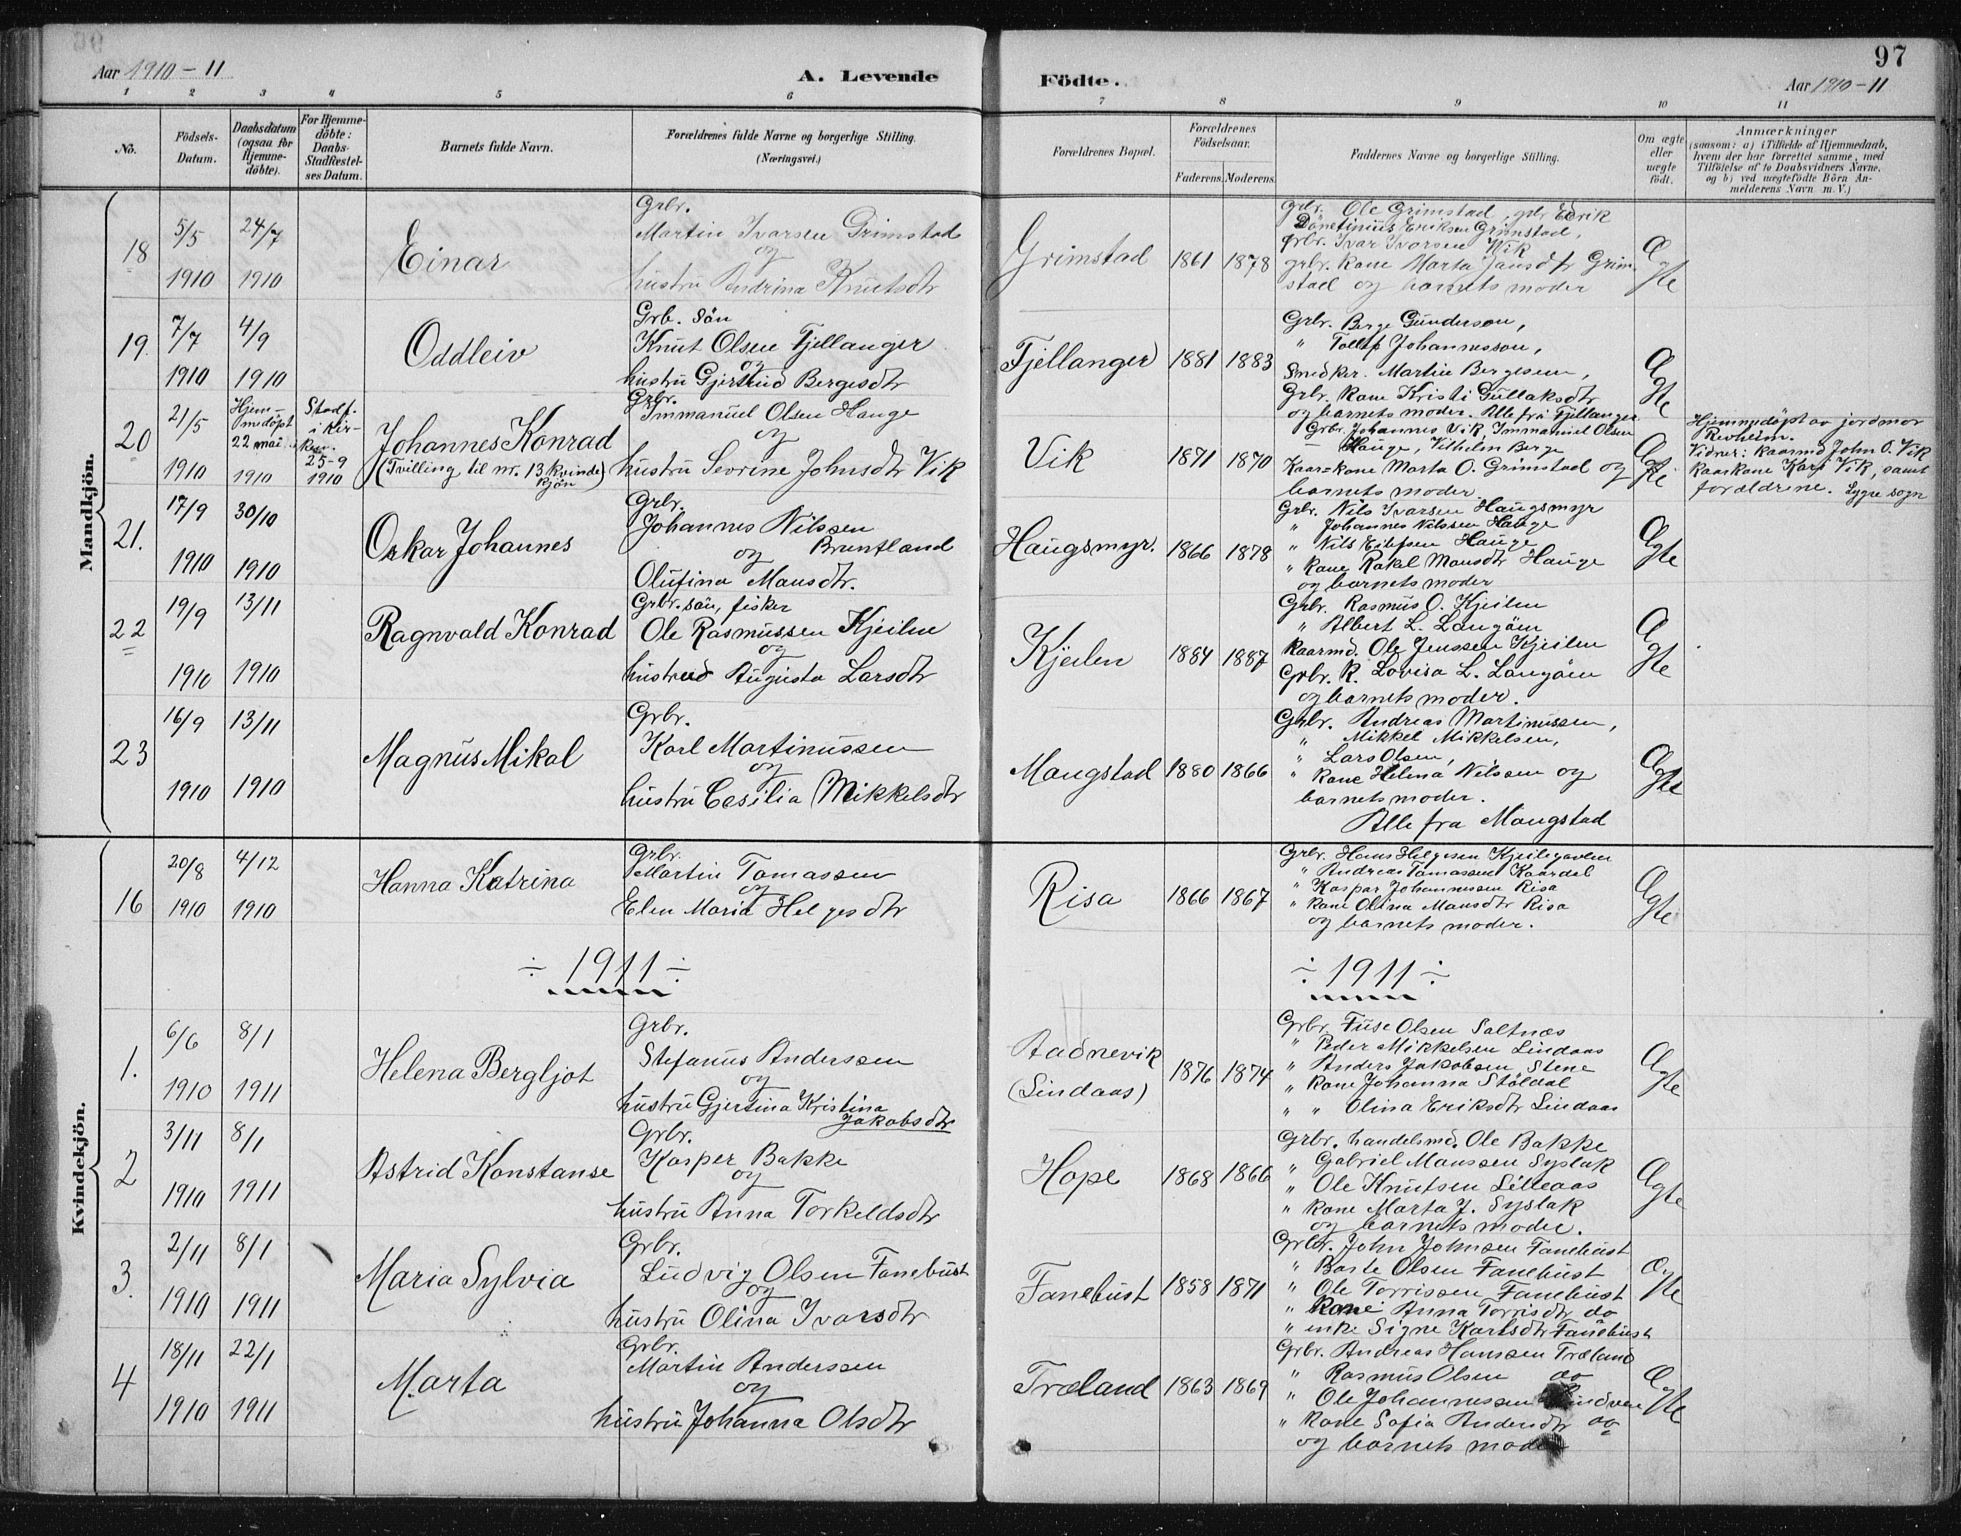 97
Aar 1910-11
A. Levende
Födte.
Aar 1910-11
1 2 3 4 5 6 7 8 9 10 11
No.
Födsels-
Datum.
Daabsdatum
(ogsaa for
Hjemme-
döbte).
For Hjemme-
döbte:
Daabs-
Stadfæstel-
ses Datum.
Barnets fulde Navn.
Forældrenes fulde Navne og borgerlige Stilling.
(Næringsvei.)
Forældrenes Bopæl.
Forældrenes
Födselsaar.
Faderens. Moderens.
Faddernes Navne og borgerlige Stilling.
Om ægte
eller
uægte
födt.
Anmærkninger
(saasom: a) i Tilfælde af Hjemmedaab,
hvem der har forrettet samme, med
Tilföielse af to Daabsvidners Navne,
og b) ved uægtefödte Börn An-
melderens Navn m. V.)
Mandkjön.
18
5/5
1910
24/7
1910
Einar
Grbr.
Martin Ivarsen Grimstad
og
hustru Andrina Knutsdtr
Grimstad
1861 1878
Grbr. Ole Grimstad, grbr Edrik
Eriksen Grimstad,
grbr. Ivar Ivarsen Vik
grbr. kone Marta Jansdtr Grim-
stad og barnets moder
Ægte
19.
7/7
1910
4/9
1910
Oddleiv
Grb. sön
Knut Olsen Fjellanger
og
hustru Gjertrud Bergesdtr
Fjellanger
1881 1883
Grbr. Berge Gunderson,
" Johannesson,
Smedker. Martin Bergesen,
Grbr. kone Kristi Gullaksdtr
og barnets moder. Alle frå Fjellanger
Ægte
20
21/5
1910
Hjem-
medöpt
22 mai
1910
Stadf.
i kir-
ken
25-9
1910
Johannes Konrad
(Tvilling til nr. 13 kvinde
kjön)
Grbr.
Immanuel Olsen Hauge
og
hustru Sevrine Johnsdtr Vik
Vik
1871 1870
Grbr. Johannes Vik Immanuel Olsen
Hauge, Vilhelm Berge
Kaar-kone Marta O. Grimstad og
barnets moder
Ægte
Hjemmedöpt av jordmor
Revheim.
Vidner: kaarmd John O. Vik
kaarkone Kari Vik, samt
forældrene. Lygre sogn
21.
17/9
1910
30/10
1910
Oskar Johannes
Grbr.
Johannes Nilssen
og Bruntland
Olufina Mansdtr.
Haugsmyr.
1866 1878
Grbr. Nils Ivarsen Haugsmyr
" Johannes Nilssen Hauge
" Nils Eilefsen Hauge
" kone Rakel Mansdtr Hauge
og barnets moder
Ægte
22
19/9
1910
13/11
1910
Ragnvald Konrad
Grbr. sön, fisker
Ole Rasmussen Kjeilen
og
hustrud Augusta Larsdtr
Kjeilen
1884 1887
Grbr. Rasmus O. Kjeilen
" Albert L. Langöen
kaarmd. Ole Jenssen Kjeilen
Grbr. k. Lovisa L. Langöen
og barnets moder.
Ægte
23
16/9
1910
13/11
1910
Magnus Mikal
Grbr.
Karl Martinussen
og
hustru Cesilia Mikkelsdtr
Mangstad
1880 1866
Grbr. Andreas Martinussen,
" Mikkel Mikkelsen,
" Lars Olsen,
" kone Helena Nilssen og
barnets moder.
Alle fra Mangstad
Ægte
Kvindekjön.
16
20/8
1910
4/12
1910
Hanna Katrina
Grbr.
Martin Tomassen
og
Elen Maria Helgesdtr
Risa
1866 1867
Grbr. Hans Helgesen Kjeilegavlen
" Andreas Tomassen Kaardal
" Kaspar Johannesen Risa
" kone Olina Mansdtr Risa
og barnets moder.
Ægte
÷ 1911 ÷
÷ 1911 ÷
1.
6/6
1910
8/1
1911
Helena Bergljot
Grbr.
Stefanus Anderssen
og
hustru Gjertina Kristina
Jakobsdtr
Aadnevik
(Lindaas)
1876 1874
Grbr. Fuse Olsen Saltnæs
" Peder Mikkelsen Lindaas
" Anders Jakobsen Stene
" kone Johanna Stöldal
" " Olina Eriksdtr Lindaas
Ægte
2
3/11
1910
8/1
1911
Astrid Konstanse
Grbr.
Kasper Bakke
og
hustru Anna Torkeldsdtr
Hope
1868 1866
Grbr. handelsmd. Ole Bakke
" Gabriel Manssen Syslak
" Ole Knutsen Lilleaas
" kone Marta J. Syslak
og barnets moder.
Ægte
3.
2/11
1910
8/1
1911
Maria Sylvia
Grbr.
Ludvig Olsen Fanebust
og
hustru Olina Ivarsdtr
Fanebust
1858 1871
Grbr. John Johnsen Fanebust
" Baste Olsen Fanebust
" Ole Torrissen Fanebust
" Kone Anna Torrisdtr do
" enke Signe Karlsdtr Fanebust
Ægte
4
18/11
1910
22/1
1911
Marta
Grbr.
Martin Anderssen
og
hustru Johanna Olsdtr
Træland
1863 1869
Grbr. Andreas Hanssen Træland
" Rasmus Olsen do
" Ole Johannessen
" kone Sofia Andersdtr do
og barnets moder
Ægte